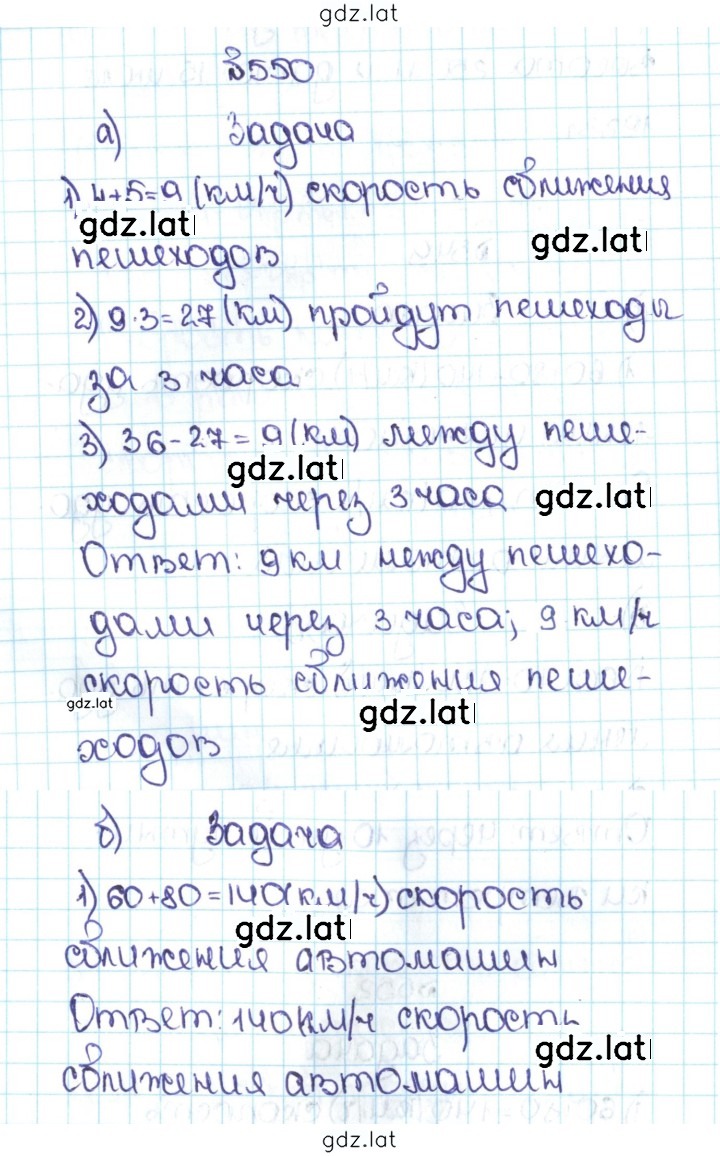 gdz.lat
№550
а) Задача
1) 4+5=9 (км/ч) скорость сближения
gdz.lat
gdz.lat
пешеходов
2) 9·3=27 (км) пройдут пешеходы
за 3 часа
3) 36-27=9 (км) между пеше-
gdz.lat
ходами через 3 часа
gdz.lat
Ответ: 9 км между пешехо-
дами через 3 часа; 9 км/ч
скорость сближения пеше-
gdz.lat
gdz.lat
ходов
б) Задача
1) 60+80=140(км/ч) скорость
gdz.lat
сближения автомашин
Ответ: 140 км/ч скорость
gdz.lat
сближения автомашин
gdz.lat